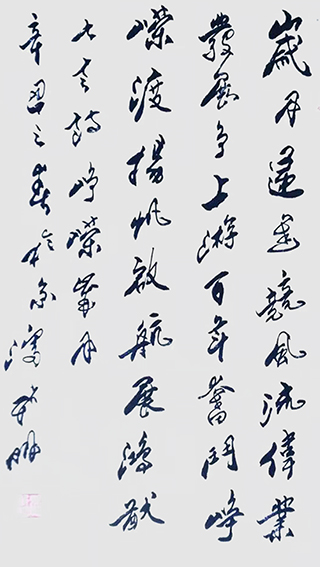 歲月逶迤競風流偉業
發展爭上游百年奮鬥崢
嶸渡揚帆啟航展鴻猷
七言詩崢嶸歲月
辛丑之春於京